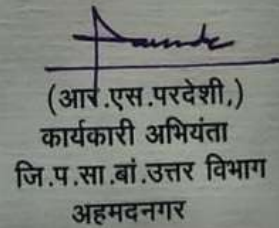 (आर.एस.परदेशी,)
कार्यकारी अभियंता
जि.प.सा.बां.उत्तर विभाग
अहमदनगर